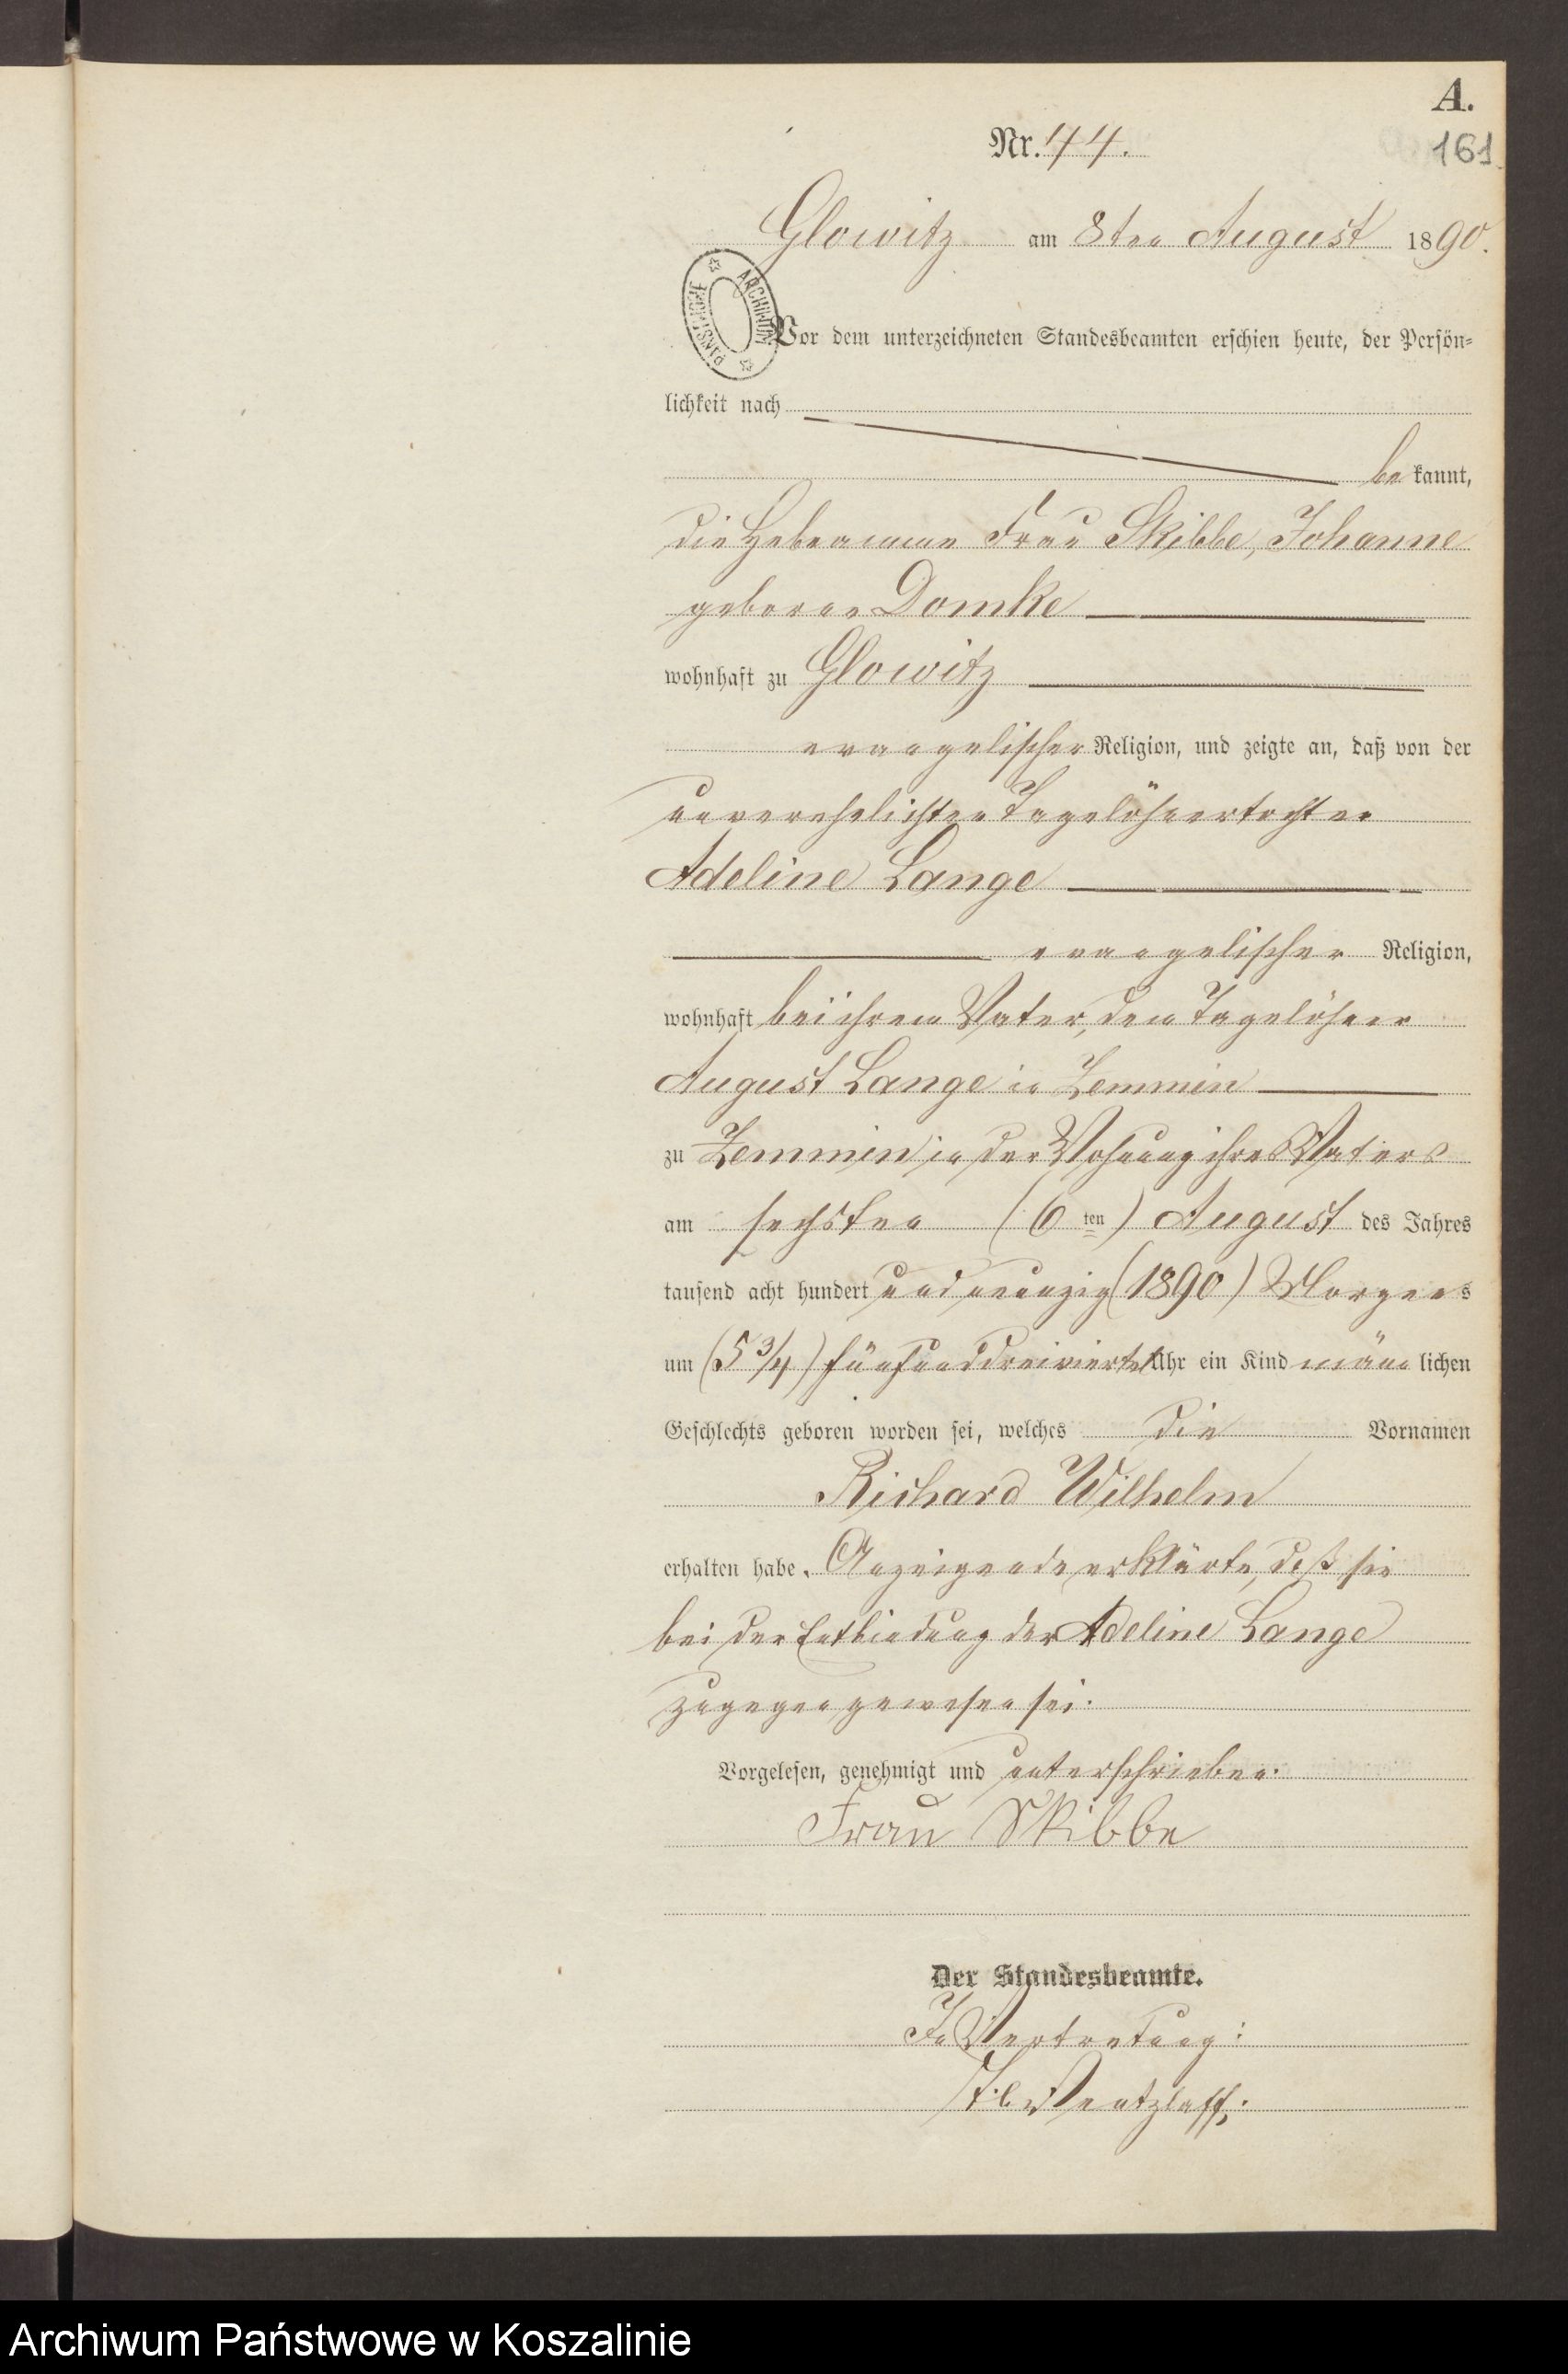 A.
Nr. 44.
161
Glowitz am 8ten August 1890.
ARCHIWUM PAŃSTWOWE
Vor dem unterzeichneten Standesbeamten erschien heute, der Persön-
lichkeit nach
bekannt,
die Hebeamme Frau Skibbe, Johanne
geborne Domke
wohnhaft zu Glowitz
evangelischer Religion, und zeigte an, daß von der
unverehelichten Tagelöhnertochter
Adeline Lange
evangelischer Religion,
wohnhaft bei ihrem Vater, dem Tagelöhner
August Lange in Zemmin
zu Zemmin in der Wohnung ihres Vaters
am sechsten (6ten) August des Jahres
tausend acht hundert und neunzig (1890) Morgens
um (5 3/4) fünfunddreiviertel Uhr ein Kind männlichen
Geschlechts geboren worden sei, welches die Vornamen
Richard Wilhelm
erhalten habe. Anzeigende erklärte, daß sie
bei der Entbindung der Adeline Lange
zugegen gewesen sei.
Vorgelesen, genehmigt und unterschrieben.
Frau Skibbe
Der Standesbeamte.
In Vertretung:
Wentzlaff.
Archiwum Państwowe w Koszalinie